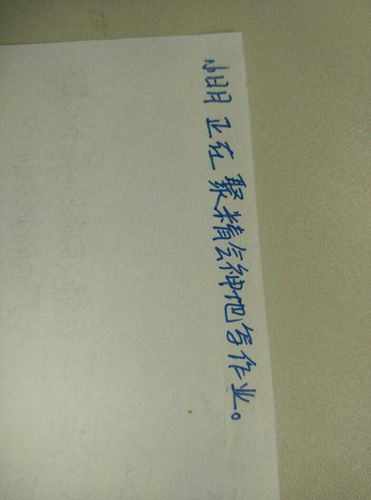 小明正在聚精会神地写作业。